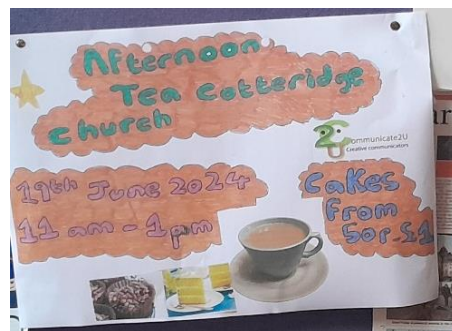 Afternoon
Tea Cotteridge
church
2U
Communicate2U
Creative communicators
19th June 2024
11 am - 1pm
Cakes
From
50p-£1